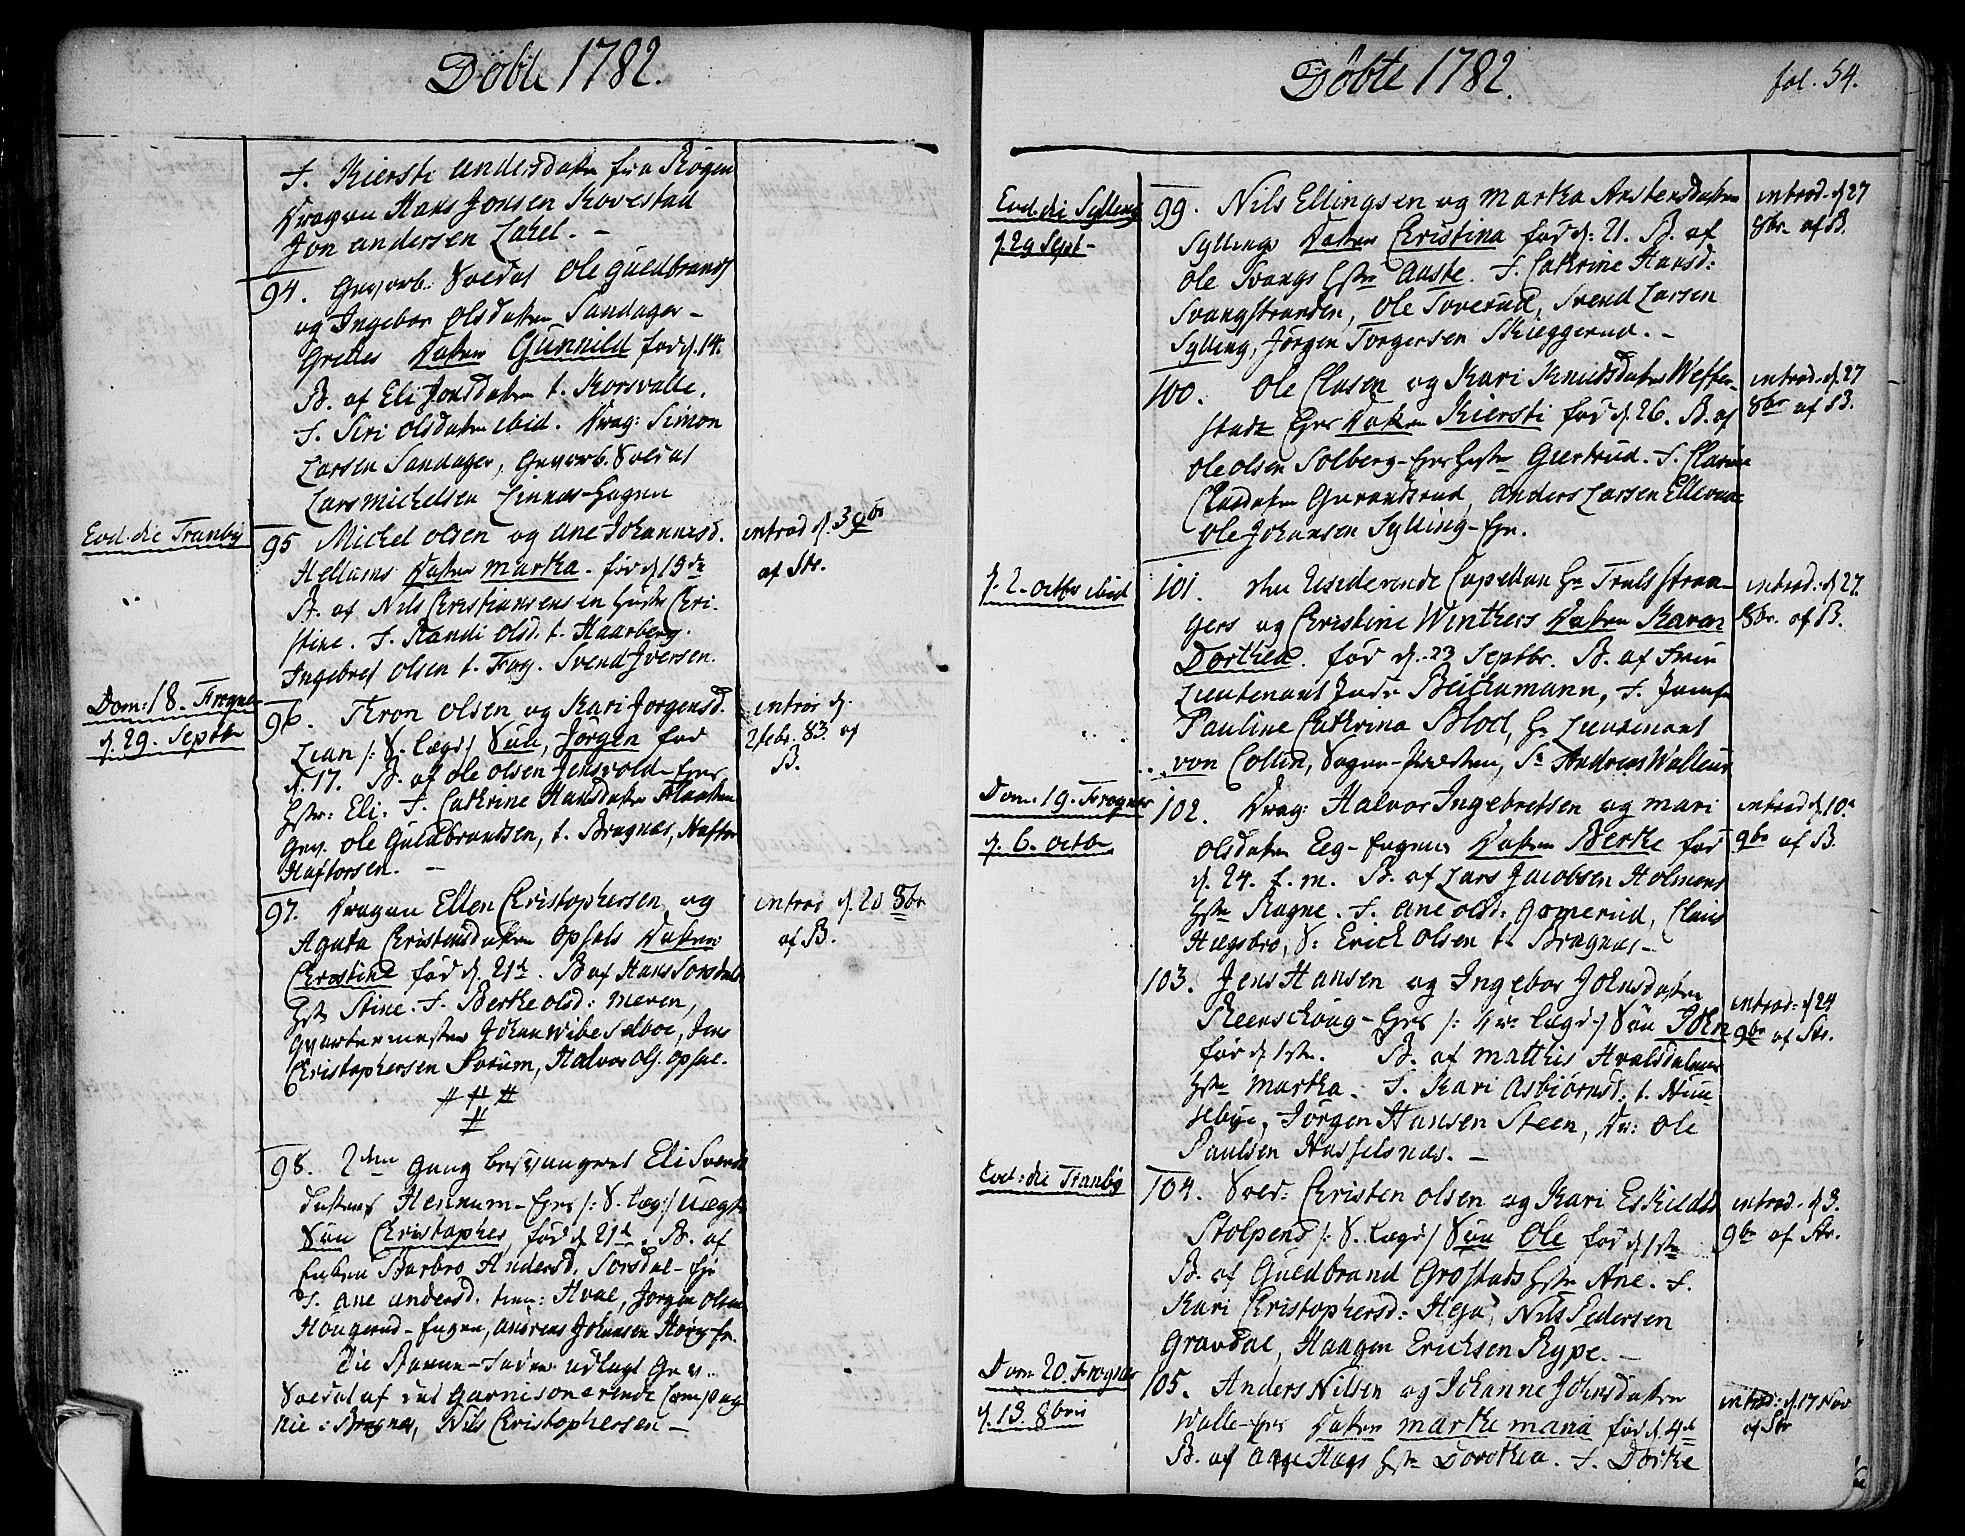 Döbte 1782.
F. Kiersti Andersdatter fra Røgen
Dragun Hans Jonsen Kovestad
Jon Andersen Lahel. –
94. Gevorb. Soldat Ole Guldbrands
og Ingebor Olsdatter Sandager-
Grettes Datter Gunnild fød d. 14.
B. af Eli Jonsdatter t. Korsvalle.
F. Siri Olsdatter ibid. Drag: Simon
Larsen Sandager, Gevorb. Soldat
Lars Michelsen Linnes-Hagen
Eod. die Tranby
95 Michel Olsen og Ane Johannesd.
Hellums Datter Martha. fød d 19de
B. af Nils Christiansens Hustr Chri-
stine. F. Randi Olsd. t. Haarberg.
Ingebret Olsen t. Frog. Svend Iversen.
introd d. 3 9br
af Str.
Dom: 18. Frogner
d. 29. Septbr
96. Thron Olsen og Kari Jorgensd.
Lian /: S. Lægd / Søn, Jørgen fød
d. 17. B. af Ole Olsen Jensvold-Ejes
Hstr: Eli. F. Cathrine Hansdatter
Gev. Ole Guldbrandsen, t. Bragnæs, Haftor
Haftorsen. –
introd d.
2 febr. 83. af
B.
97. Dragun Ellen Christophersen og
Agata Christensdatter Opsals Datter
Christine fød d. 21de. B af Hans Sorsdals
Hstr Stine. F. Berthe Olsd: Meren,
Qvartermester Johan Wibe Selboe, Jens
Christophersen Sorum, Halvor Ols. Opsal.
introd d. 20 8br
af B.
98. 2den Gang besvangret Eli Svends
datters Hennum-Ejes /: S. Læg: / Uægte
Søn Christopher, fød d 21de. B. af
Enken Barbro Andersd. Sorsdal-Eje
F. Ane Andersd. Hval, Jørgen Olsen
Hougerud-Eugen, Andreas Johansen
Die Barne-Fader udlagt Gev.
Soldat af det Garnisonerende Compag
nie i Bragnes, Nils Christophersen –
Döbte 1782.
fol. 54.
Eod. die Sylling
d. 29 Sept-
99. Nils Ellingsen og Martha Anstensdatter
Syllings Datter Christina fød d: 21. B. af
Ole Svangs Hstr Aaste. F. Cathrine Hansd:
Svangstranden, Ole Soverud, Svend Larsen
Sylling, Jörgen Torgersen Skieggerud. –
introd. d. 27
8br. af B.
100. Ole Clasen og Kari Knudsdatter Weffer-
stads Ejes Datter Kiersti fød d. 26. B. af
Ole Olsen Solberg-Ejes Hstr Giertrud. F.
Clasdatter Gurandsrud, Anders Larsen
Ole Johansen Sylling-Eje.
introd. d. 27
8br af B.
d. 2. Octbr ibid
101. Den Residerende Capellan Hr Truls Stran-
gers og Christine Winthers Datter Karen
Dorthea. fød d. 23 Septbr. B. af Frue
Lieutenant Beichmann, F. Jomfr
Pauline Cathrina Blod, Hr Lieutenant
von Collin, Sogne-Præsten, Sr Andreas Walleur
introd: d. 27.
8br. af B.
Dom: 19. Frogner
d. 6. Octbr
102. Drag: Halvor Ingebretsen og Mari
Olsdatter Eeg-Eugens Datter Berthe fød
d. 24. f. m. B. af Lars Jacobsen Holmens
Hstr Ragne. F. Ane Olsd: Gomerud, Claus
Hægsbro, S: Erich Olsen t. Bragnæs –
introd d 10.
9br af B.
103. Jens Hansen og Ingebor Johnsdatter
Reenschoug-Ejes /: Gev Lægd / Søn John
fød d 1ste. B. af Matthis Hvalsdalens
Hstr Martha. F. Kari Asbiørnsd. t. Huu-
sebye, Jörgen Hansen Steen, Dr: Ole
Paulsen Hasselsnæs. –
introd: d 24
9br af Str.
Eod: die Tranby
104. Sold: Christen Olsen og Kari Eskilds
Stolpens /: S. Lægd / Søn Ole fød d 1ste
B. af Guldbrand Grostads Hstr Ane. F.
Kari Christophersd: Heja, Nils Pedersen
Gravdal, Haagen Erichsen Rype. –
introd. d 3.
9br af Str.
Dom 20. Frogner
d. 13. 8bris
105. Anders Nilsen og Johanne Johnsdatter
Walle-Ejes Datter Marthe Maria fød d. 4de
B. af Aage Hags Hstr Dorothea. F. Dorthe
introd: d. 17 Nov
af Str